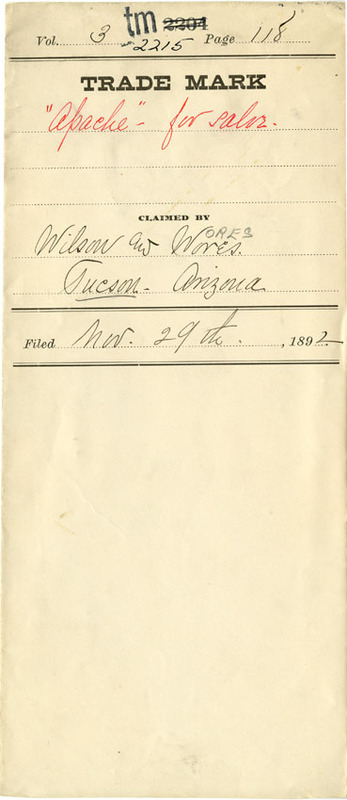 tm 2204
Vol. 3 2215 Page 118
TRADE MARK
"Apache" - for salve.
CLAIMED BY
ORES
Wilson and Wores.
Tucson - Arizona
Filed Nov. 29th. , 1892